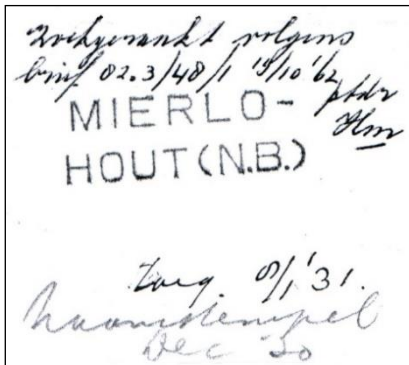 Zoekgemaakt volgens
brief 82.3/48/1 19/10 '62
ptdr
Hm
MIERLO-
HOUT (N.B.)
9/1 '31.
Naamstempel
Dec 30